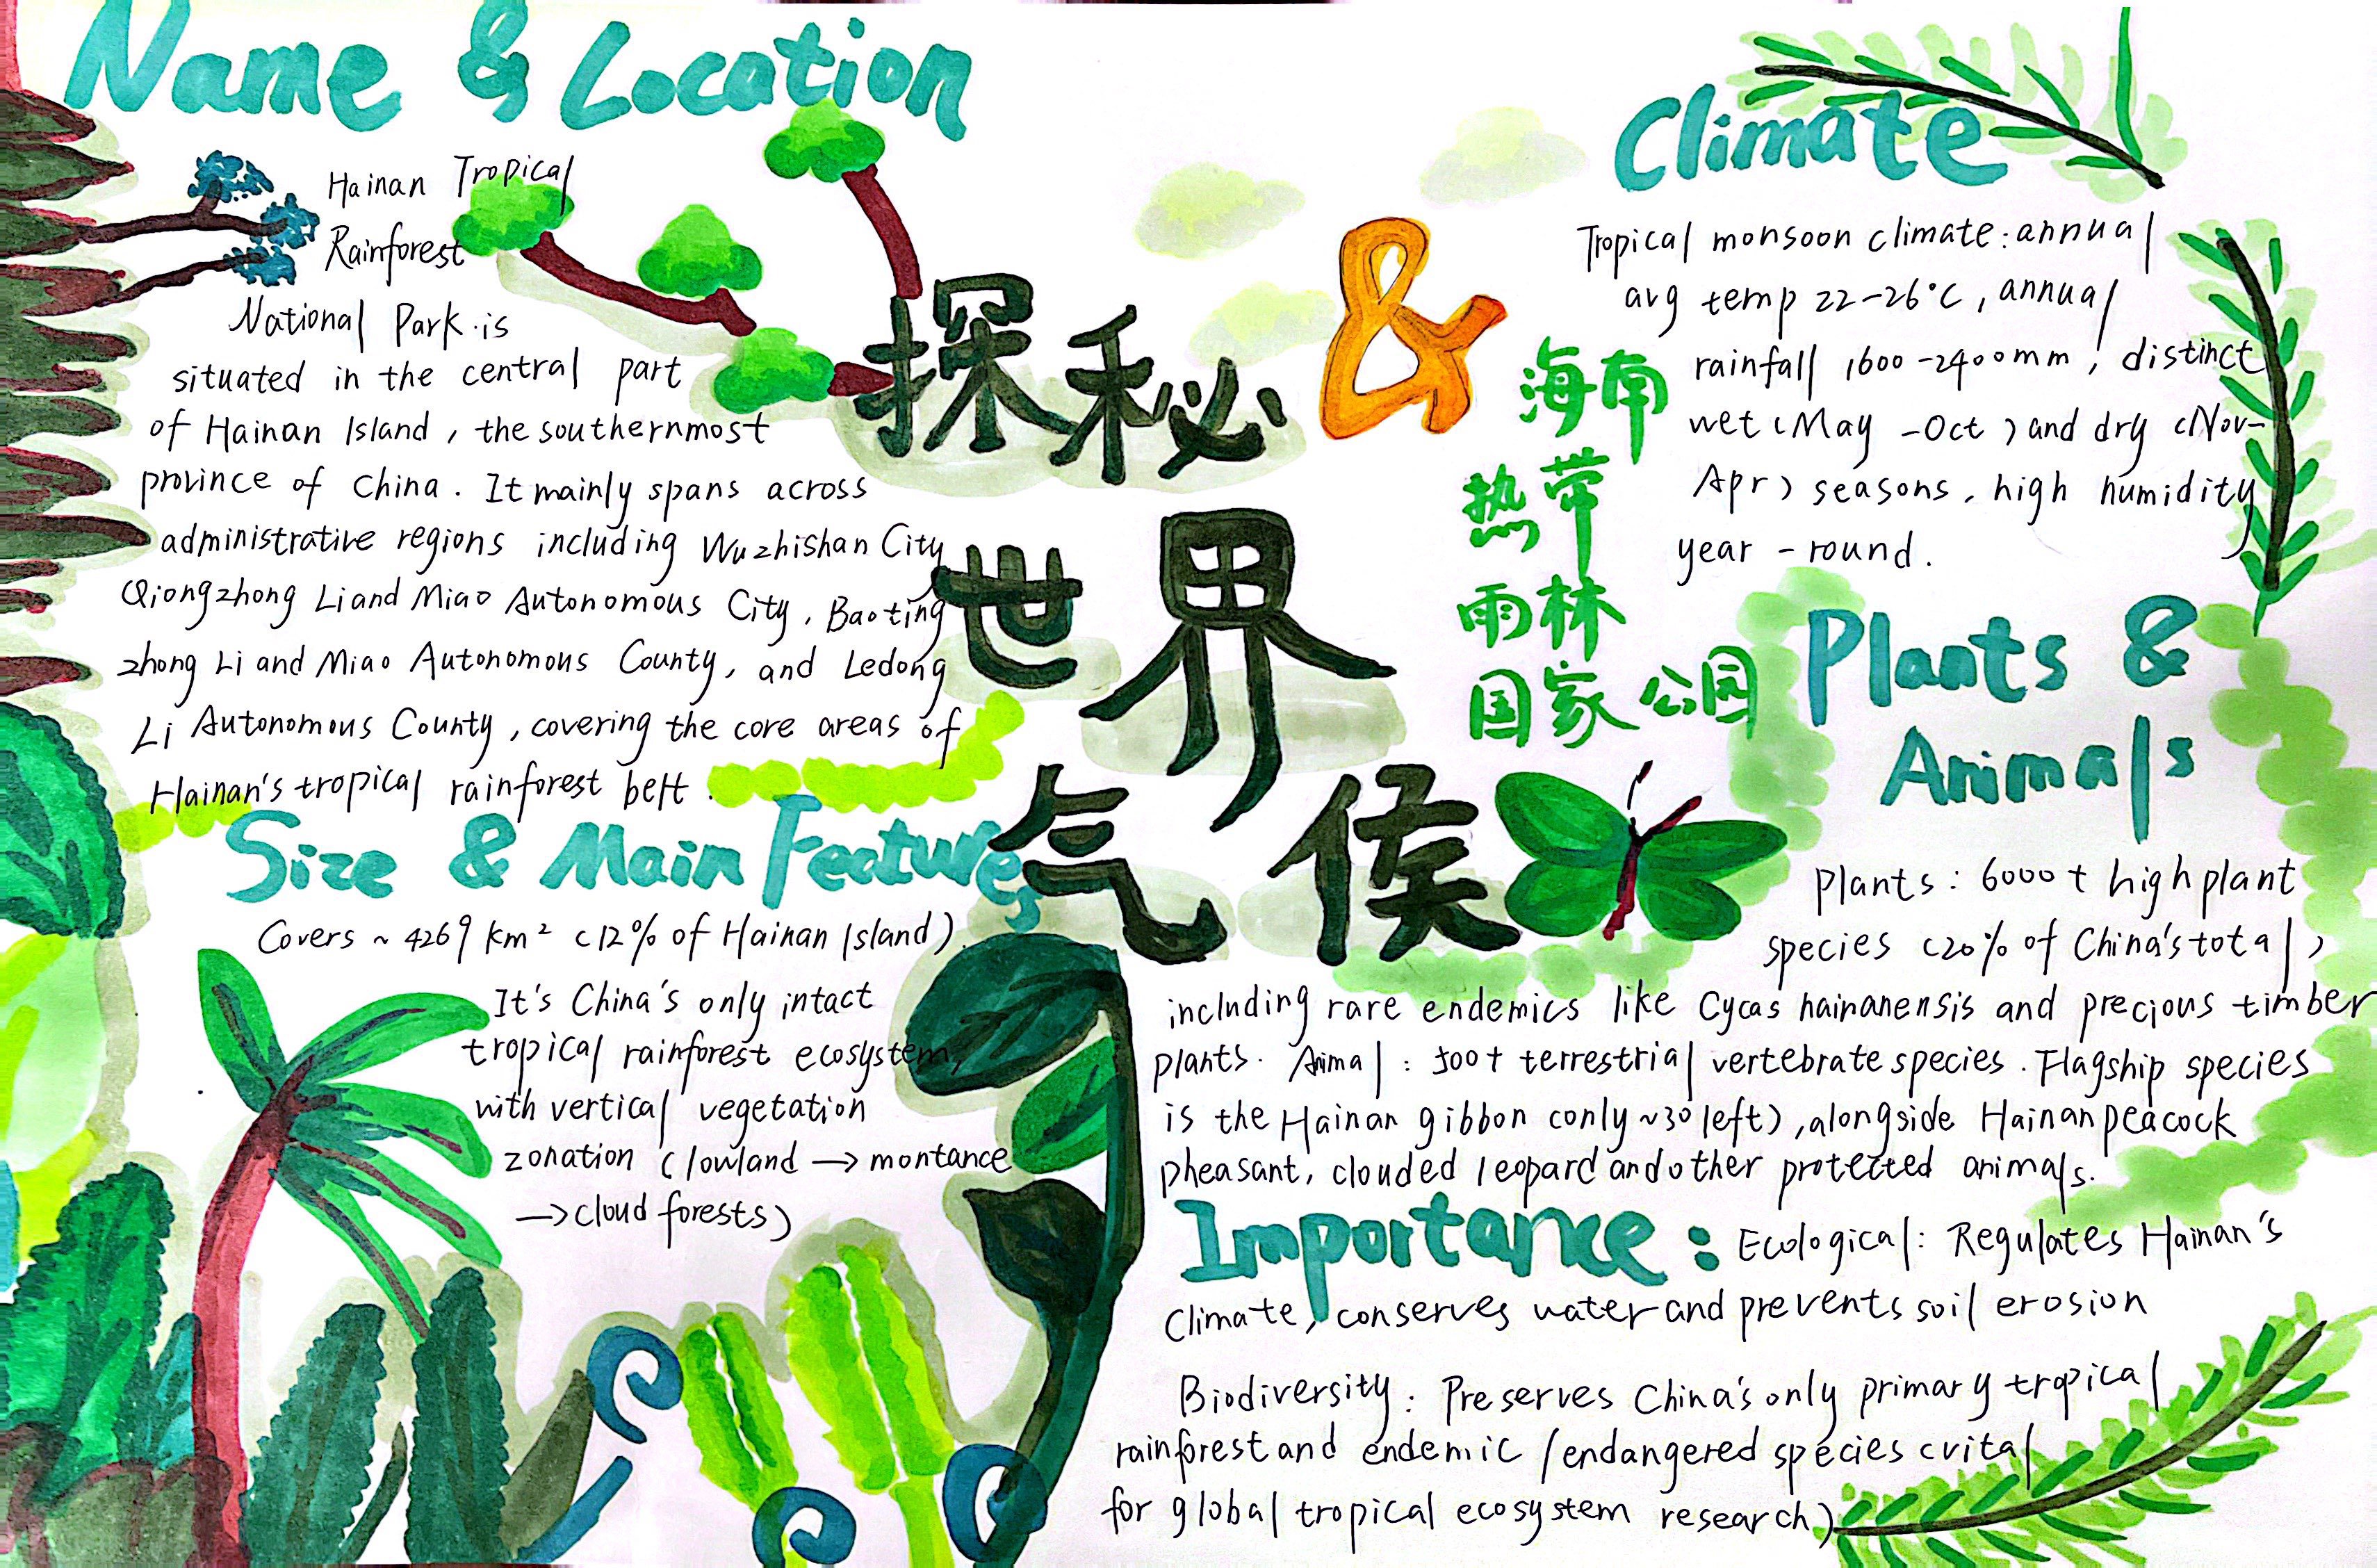 Name & Location
Hainan Tropical
Rainforest
National Park is
situated in the central part
of Hainan Island, the southernmost
province of China. It mainly spans across
administrative regions including Wuzhishan City
Qiongzhong Li and Miao Autonomous City, Baoting
zhong Li and Miao Autonomous County, and Ledong
Li Autonomous County, covering the core areas of
Hainan's tropical rainforest belt.
Size & Main Features
Covers ~ 4269 km² (12% of Hainan Island)
It's China's only intact
tropical rainforest ecosystem,
with vertical vegetation
zonation (lowland → montance
→ cloud forests)
探秘
世界
气候
&
海南
热带
雨林
国家公园
Climate
Tropical monsoon climate: annual
avg temp 22-26°C, annual
rainfall 1600-2400mm, distinct
wet (May - Oct) and dry (Nov-
Apr) seasons, high humidity
year-round.
Plants &
Animals
Plants: 6000+ high plant
species (20% of China's total)
including rare endemics like Cycas hainanensis and precious timber
plants. Animal: 500+ terrestrial vertebrate species. Flagship species
is the Hainan gibbon (only ~30 left), alongside Hainan peacock
pheasant, clouded leopard and other protected animals.
Importance: Ecological: Regulates Hainan's
Climate, conserves water and prevents soil erosion
Biodiversity: Preserves China's only primary tropical
rainforest and endemic/endangered species (vital
for global tropical ecosystem research)